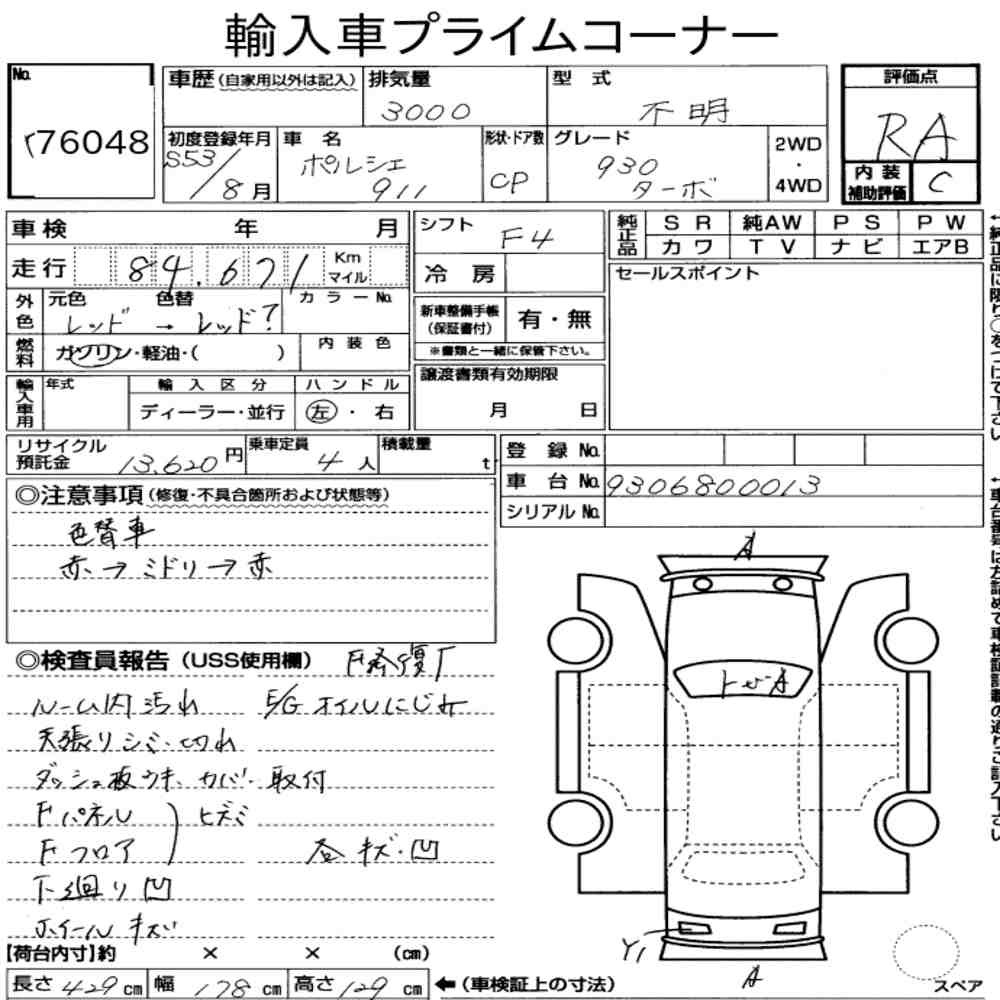 輸入車プライムコーナー
No.
76048
車歴(自家用以外は記入)
排気量
3000
型 式
不明
評価点
RA
初度登録年月
S53/8月
車 名
ポルシェ
911
形状・ドア数
CP
グレード
930
ターボ
2WD
・
4WD
内 装
補助評価
C
車検 年 月
シフト
F4
純正品
SR 純AW PS PW
カワ TV ナビ エアB
走行 84,671 Km
マイル
冷 房
セールスポイント
外色
元色 色替 カラーNo.
レッド → レッド?
新車整備手帳
(保証書付)
有・無
※書類と一緒に保管下さい。
燃料
ガソリン・軽油・( )
内 装 色
輸入車用
年式
輸 入 区 分
ハ ン ド ル
ディーラー・並行
左・右
譲渡書類有効期限
月 日
リサイクル
預託金
13,620円
乗車定員
4人
積載量
t
登 録 No.
車 台 No. 9306800013
シリアル No.
◎注意事項(修復・不具合箇所および状態等)
色替車
赤→ミドリ→赤
◎検査員報告(USS使用欄)
ルーム内汚れ
E/Gオイルにじみ
天張りシミ・切れ
ダッシュ板ウキ、カバー取付
Fパネル
Fフロア
ヒズミ
各キズ・凹
下廻り凹
ホイールキズ
【荷台内寸】約 × × (cm)
長さ 429 cm 幅 178 cm 高さ 129 cm
←(車検証上の寸法)
A
トビA
Y1
A
スペア
←純正品に限り○をつけて下さい